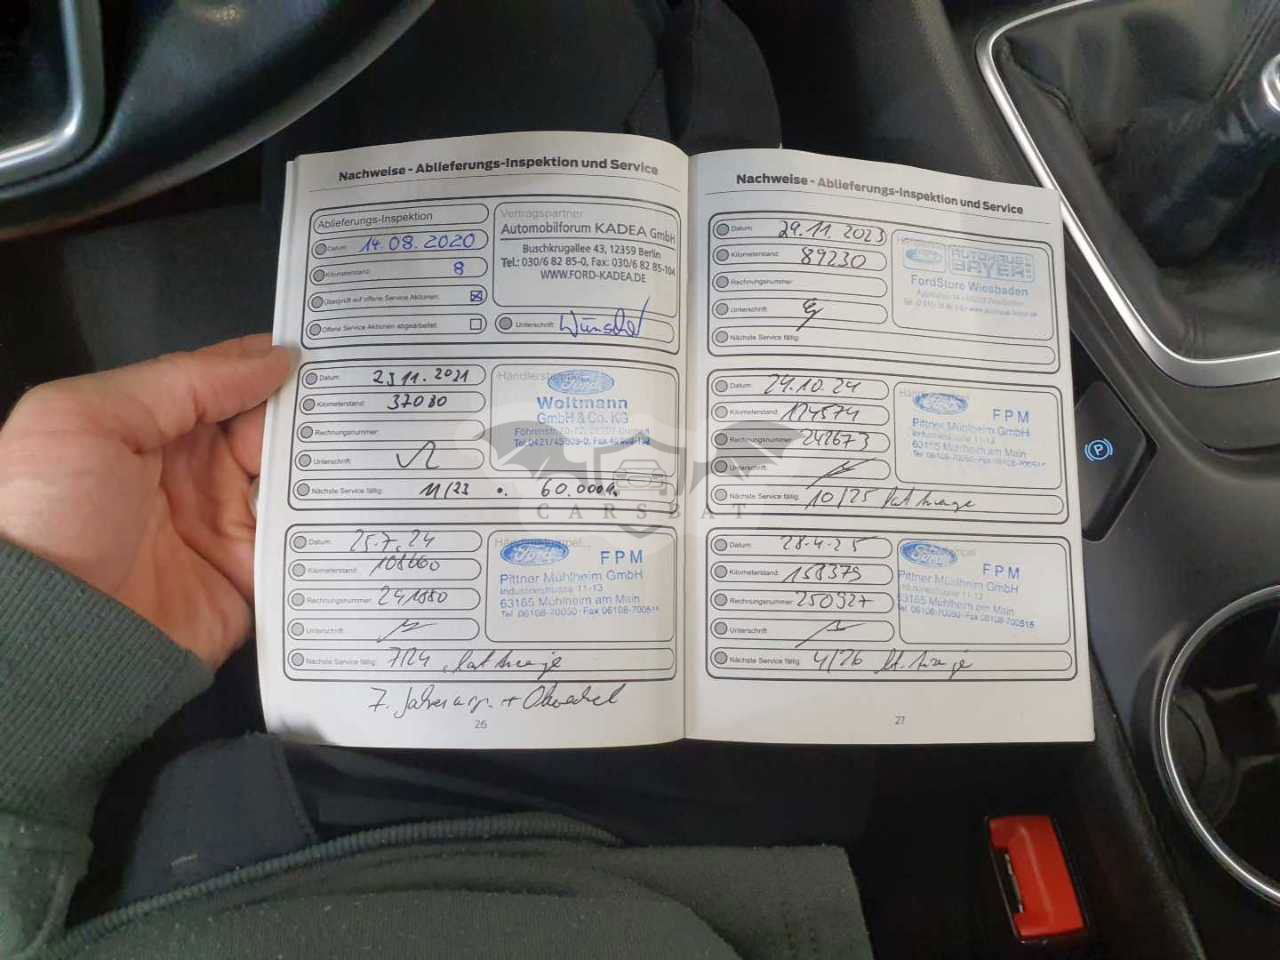 Nachweise - Ablieferungs-Inspektion und Service
Ablieferungs-Inspektion
Datum: 14.08.2020
Kilometerstand: 8
Überprüft auf offene Service Aktionen:
Offene Service Aktionen abgearbeitet:
Vertragspartner
Automobilforum KADEA GmbH
Buschkrugallee 43, 12359 Berlin
Tel.: 030/6 82 85-0, Fax: 030/6 82 85-104
WWW.FORD-KADEA.DE
Unterschrift:
Datum: 23.11.2021
Kilometerstand: 37080
Rechnungsnummer:
Unterschrift:
Nächste Service fällig: 11/23 o. 60.000
Händlerstempel
Ford
Woltmann
GmbH & Co. KG
Datum: 25.7.24
Kilometerstand: 108660
Rechnungsnummer: 241680
Unterschrift:
Nächste Service fällig: 7/24
Ford FPM
Pittner Mühlheim GmbH
Industriestrasse 11-13
63165 Mühlheim am Main
Tel. 06108-70050 - Fax 06108-700515
7.
26
Nachweise - Ablieferungs-Inspektion und Service
Datum: 29.11.2023
Kilometerstand: 89230
Rechnungsnummer:
Unterschrift:
Nächste Service fällig:
Ford AUTOHAUS BAYER
FordStore Wiesbaden
Datum: 24.10.24
Kilometerstand: 124574
Rechnungsnummer: 242673
Unterschrift:
Nächste Service fällig: 10/25
Ford FPM
Pittner Mühlheim GmbH
Industriestrasse 11-13
63165 Mühlheim am Main
Tel. 06108-70050 - Fax 06108-700515
Datum: 28.4.25
Kilometerstand: 158379
Rechnungsnummer: 250927
Unterschrift:
Nächste Service fällig: 4/26
Ford FPM
Pittner Mühlheim GmbH
Industriestrasse 11-13
63165 Mühlheim am Main
Tel. 06108-70050 - Fax 06108-700515
27
CARSBAT
P